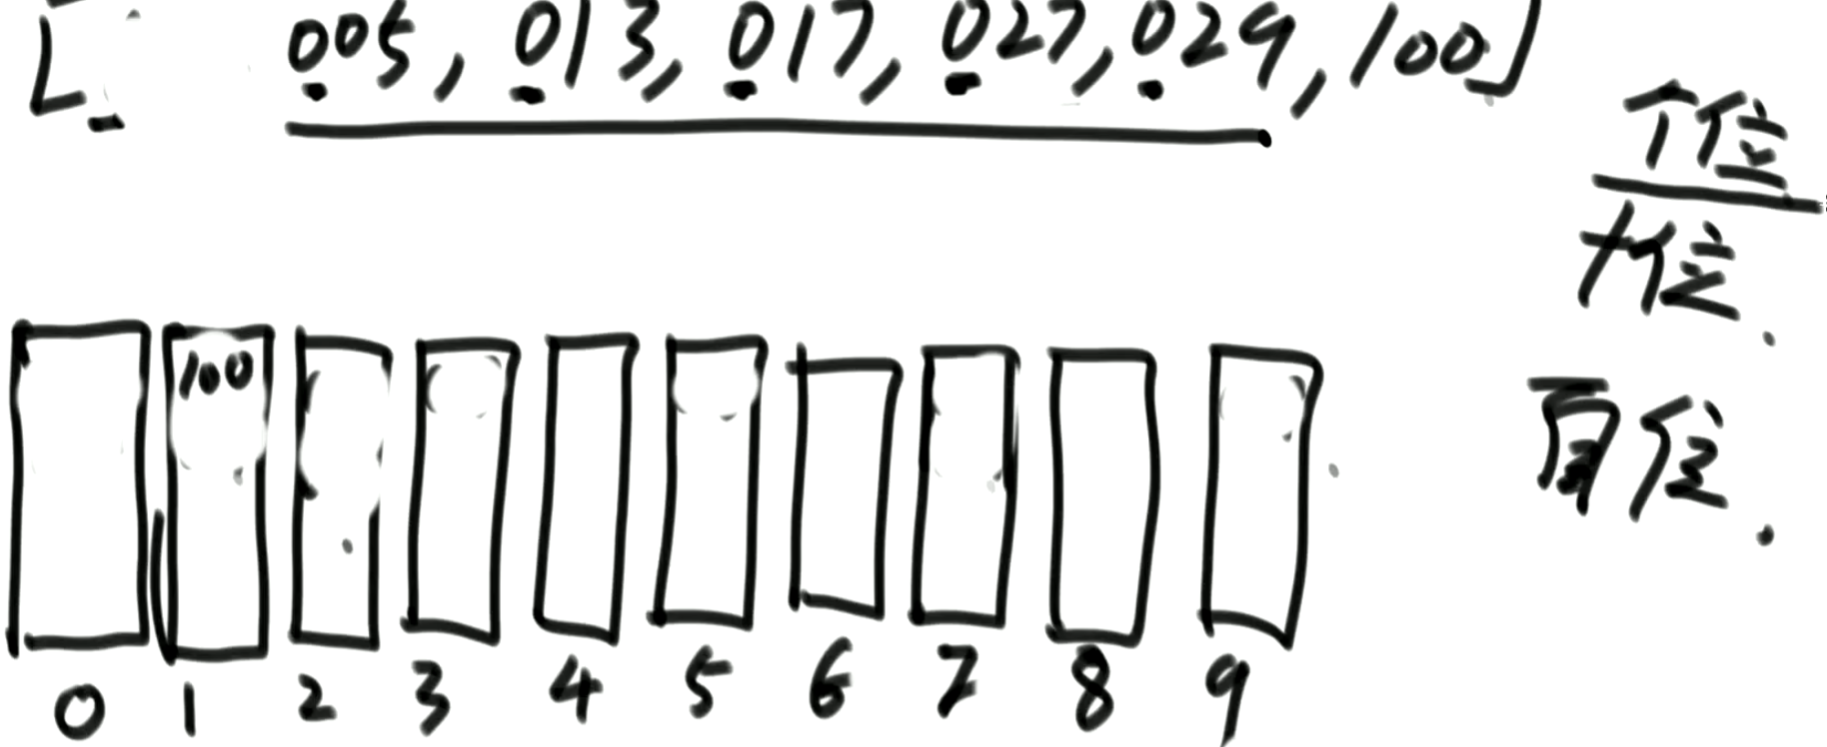 [ 005, 013, 017, 027, 029, 100]
个位
十位.
百位.
100
0 1 2 3 4 5 6 7 8 9